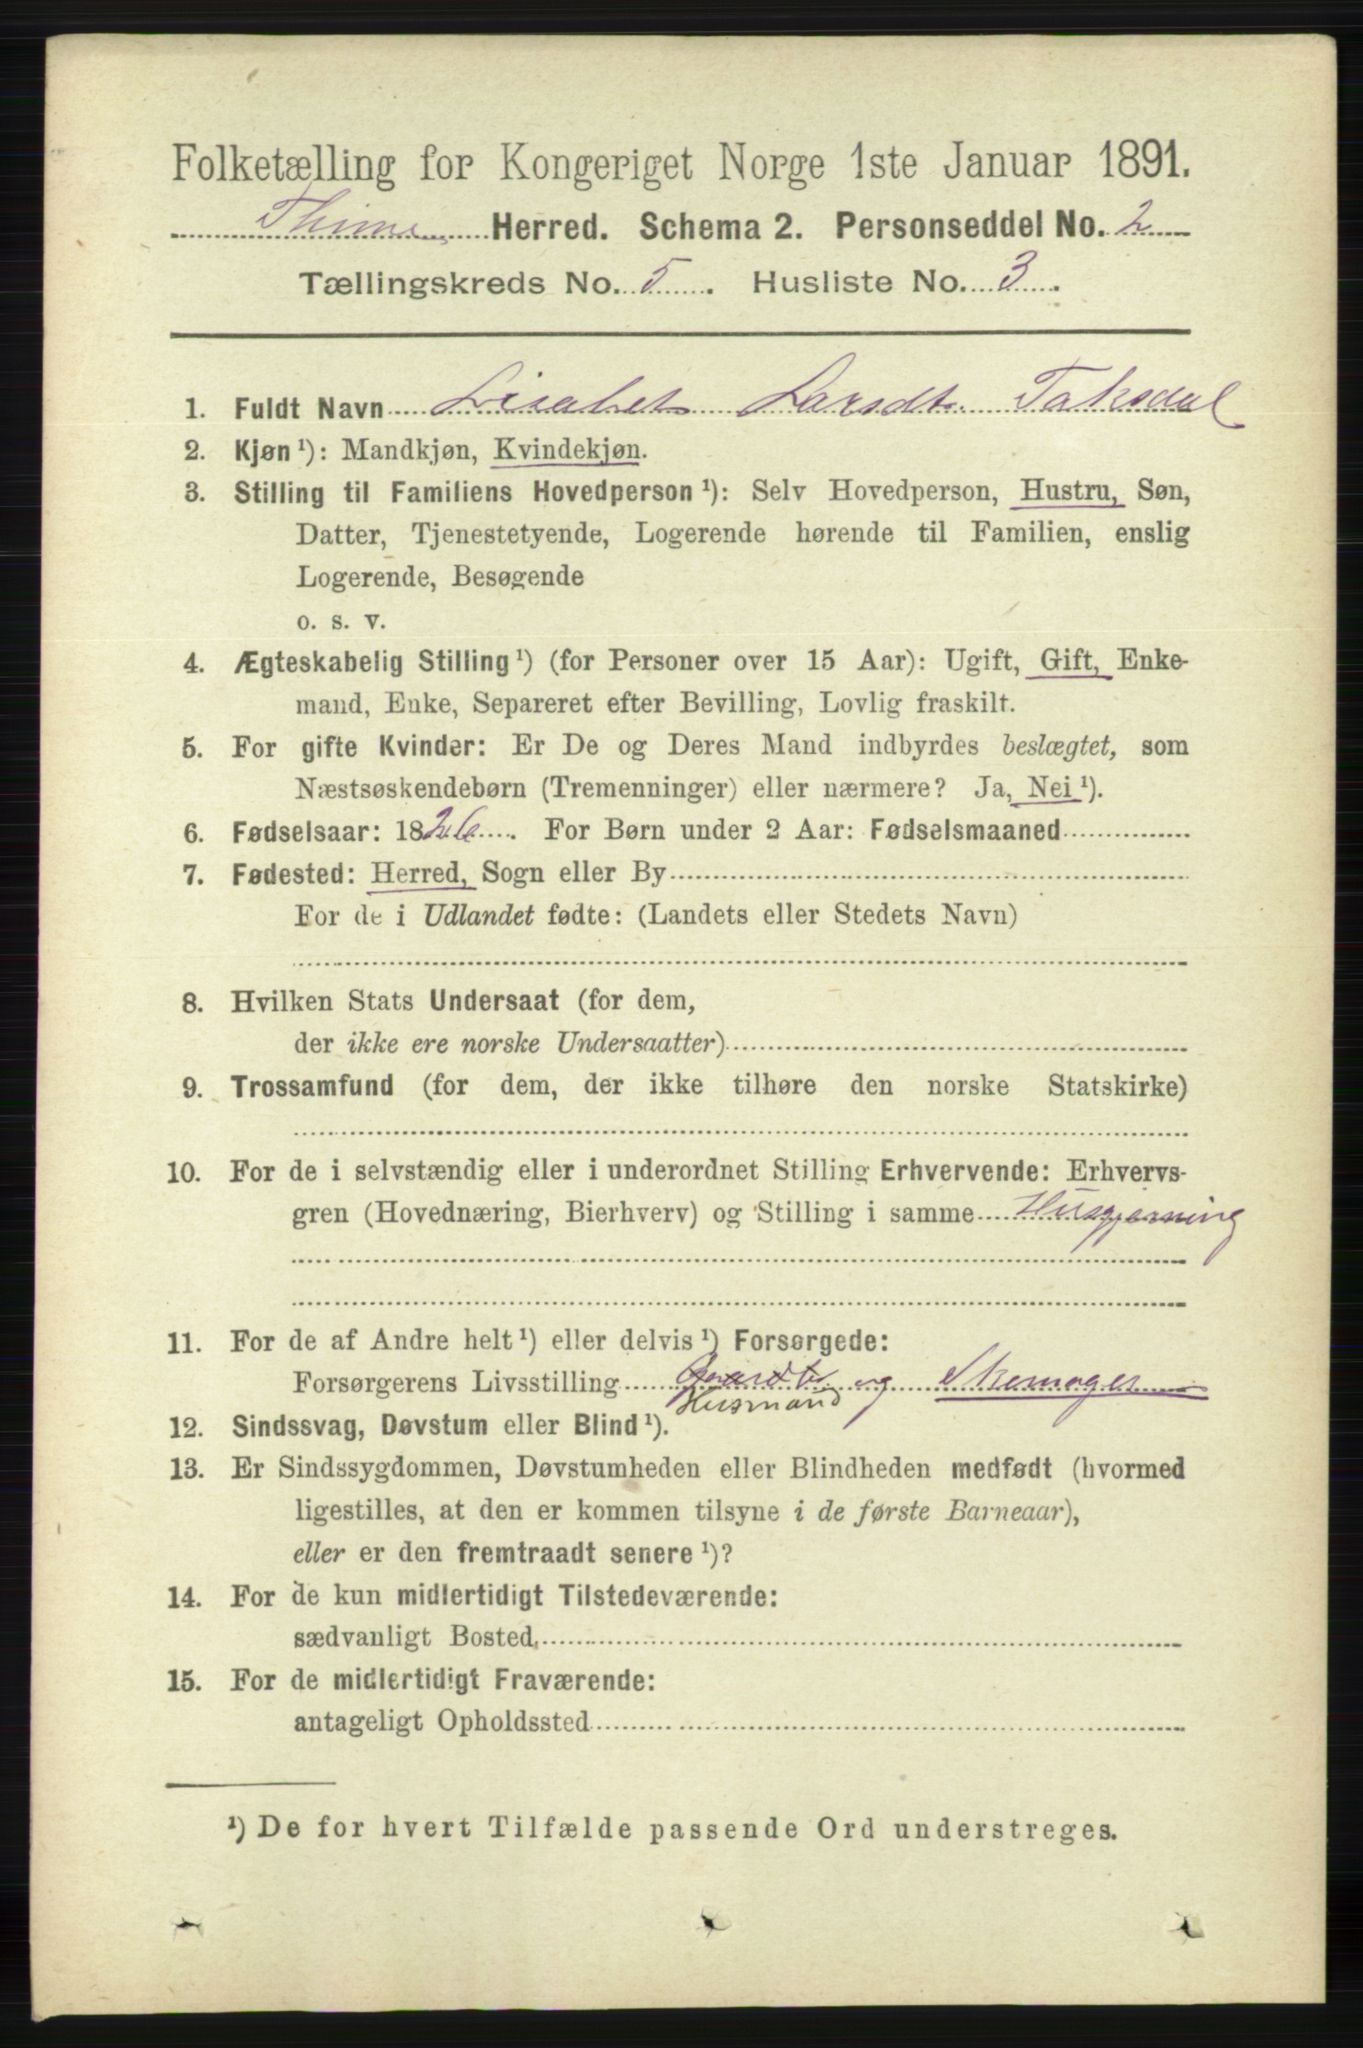 Folketælling for Kongeriget Norge 1ste Januar 1891.
Thime Herred. Schema 2. Personseddel No. 2
Tællingskreds No. 5. Husliste No. 3.
1. Fuldt Navn Lisabet Larsdt. Taksdal
2. Kjøn ¹): Mandkjøn, Kvindekjøn.
3. Stilling til Familiens Hovedperson ¹): Selv Hovedperson, Hustru, Søn,
Datter, Tjenestetyende, Logerende hørende til Familien, enslig
Logerende, Besøgende
o. s. v.
4. Ægteskabelig Stilling ¹) (for Personer over 15 Aar): Ugift, Gift, Enke-
mand, Enke, Separeret efter Bevilling, Lovlig fraskilt.
5. For gifte Kvinder: Er De og Deres Mand indbyrdes beslægtet, som
Næstsøskendebørn (Tremenninger) eller nærmere? Ja, Nei ¹).
6. Fødselsaar: 1826. For Børn under 2 Aar: Fødselsmaaned
7. Fødested: Herred, Sogn eller By
For de i Udlandet fødte: (Landets eller Stedets Navn)
8. Hvilken Stats Undersaat (for dem,
der ikke ere norske Undersaatter)
9. Trossamfund (for dem, der ikke tilhøre den norske Statskirke)
10. For de i selvstændig eller i underordnet Stilling Erhvervende: Erhvervs-
gren (Hovednæring, Bierhverv) og Stilling i samme Husgjerning
11. For de af Andre helt ¹) eller delvis ¹) Forsørgede:
Forsørgerens Livsstilling og Skomager
Husmand
12. Sindssvag, Døvstum eller Blind ¹).
13. Er Sindssygdommen, Døvstumheden eller Blindheden medfødt (hvormed
ligestilles, at den er kommen tilsyne i de første Barneaar),
eller er den fremtraadt senere ¹)?
14. For de kun midlertidigt Tilstedeværende:
sædvanligt Bosted
15. For de midlertidigt Fraværende:
antageligt Opholdssted
¹) De for hvert Tilfælde passende Ord understreges.